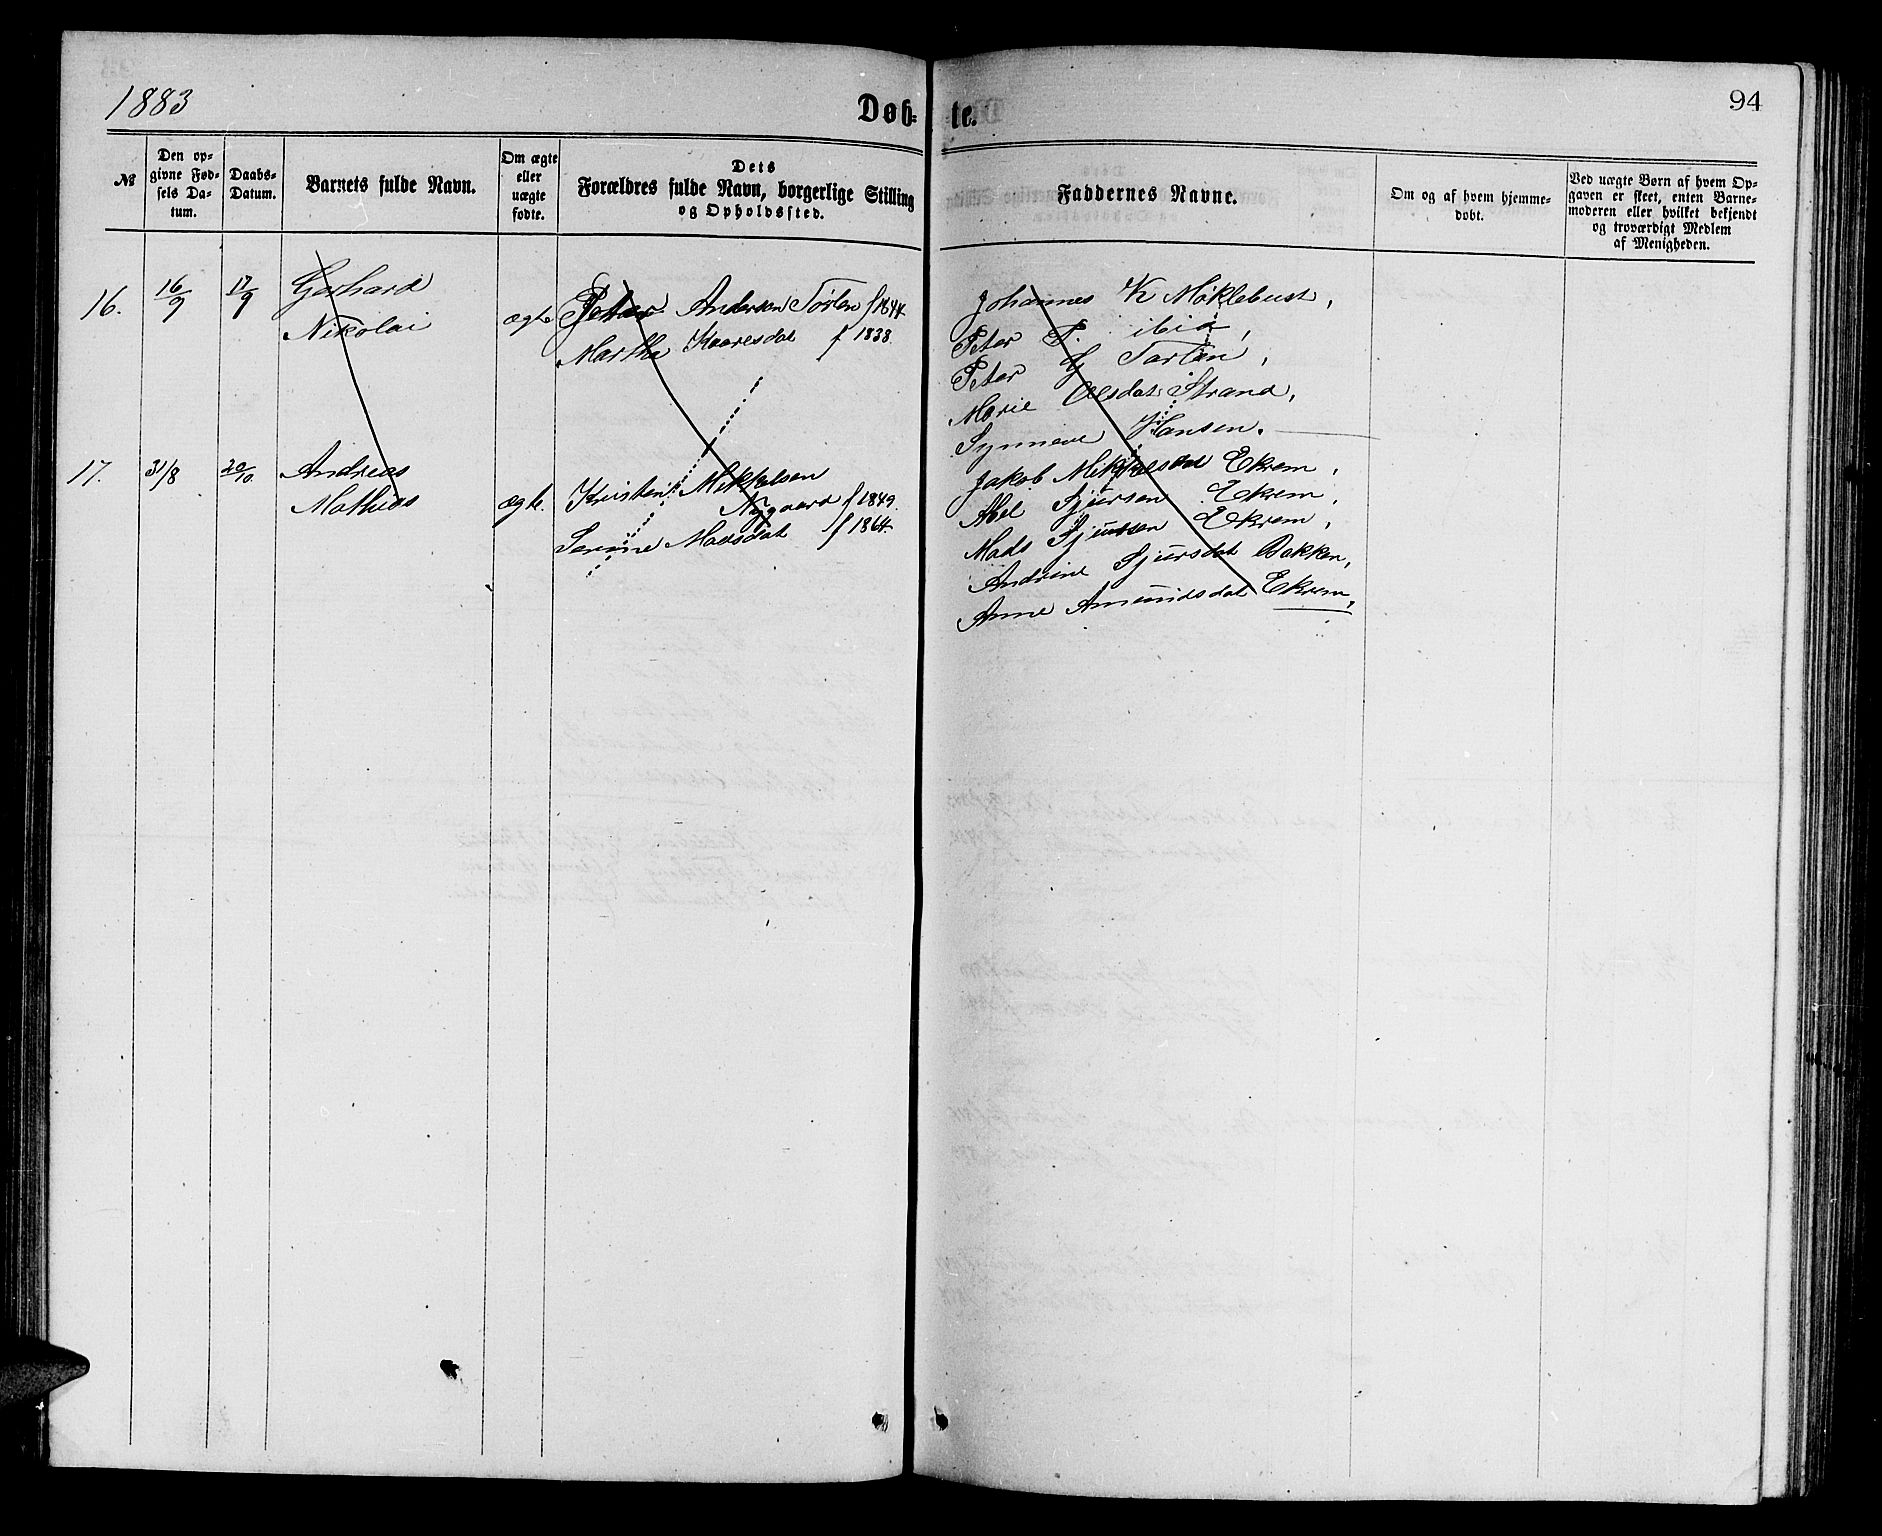 1883
Døb-te.
94
№
Den op-
givne Fød-
sels Da-
tum.
Daabs-
Datum.
Barnets fulde Navn.
Om ægte
eller
uægte
fødte.
Dets
Forældres fulde Navn, borgerlige Stilling
og Opholdssted.
Faddernes Navne.
Om og af hvem hjemme-
døbt.
Ved uægte Børn af hvem Op-
gaven er skeet, enten Barne-
moderen eller hvilket bekjendt
og troværdigt Medlem
af Menigheden.
16.
16/9
17/9
Gerhard
Nikolai
ægte
Peter Andersen Törlen f 1844
Marthe Kaaresdat f 1838.
Johannes K Möklebust,
Peter P. ibid,
Peter G Tørlen,
Marie Olsdat Strand,
Synneve Hansen.
17.
31/8
20/10.
Andreas
Mathias
ægte.
Kristen Mikkelsen
Nygaard f 1849.
Serine Madsdat f 1864.
Jakob Mikkelsdal Ekrem,
Abel Sjursen Ekrem,
Mads Sjursen Ekrem,
Andrine Sjursdat Bakken,
Anne Amundsdat Ekrem,